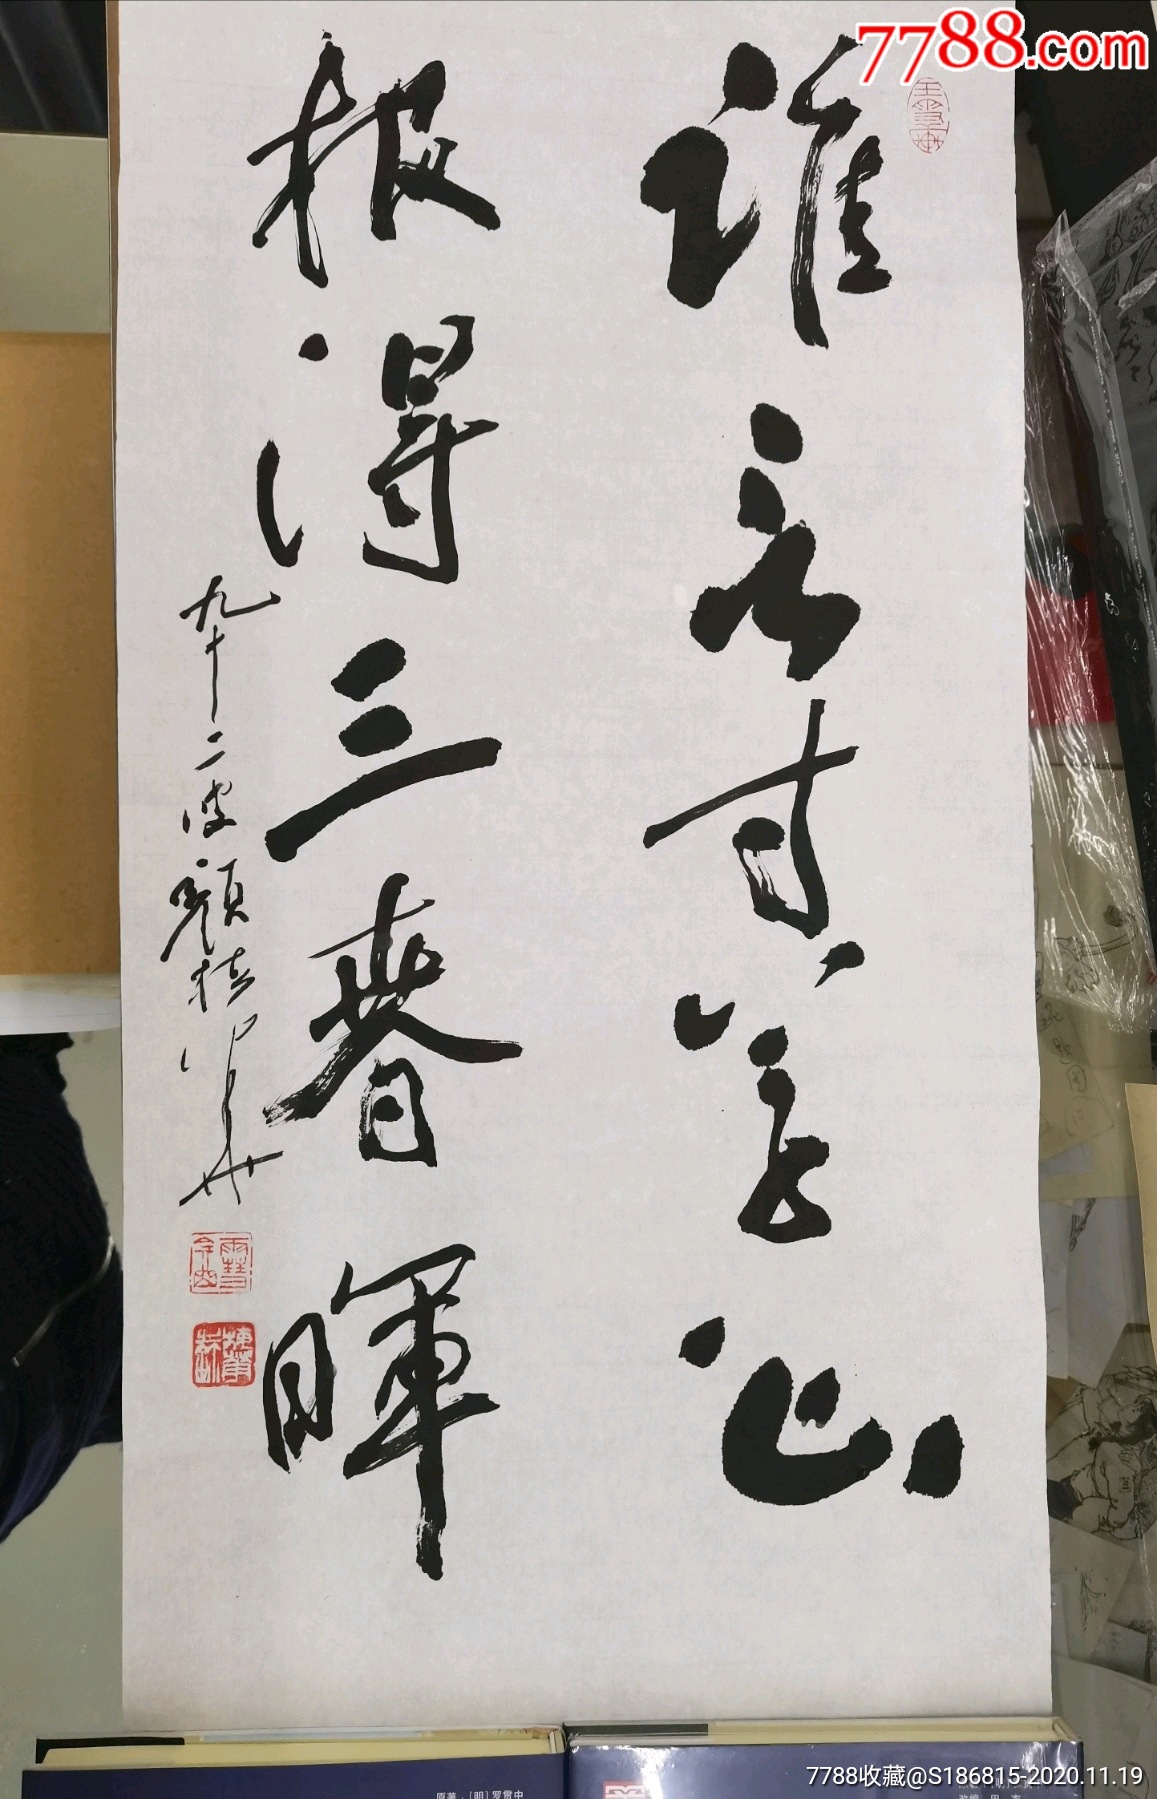 7788.com
谁言寸草心
报得三春晖
九十二叟顾
原著·[明]罗贯中
7788收藏@S186815-2020.11.19